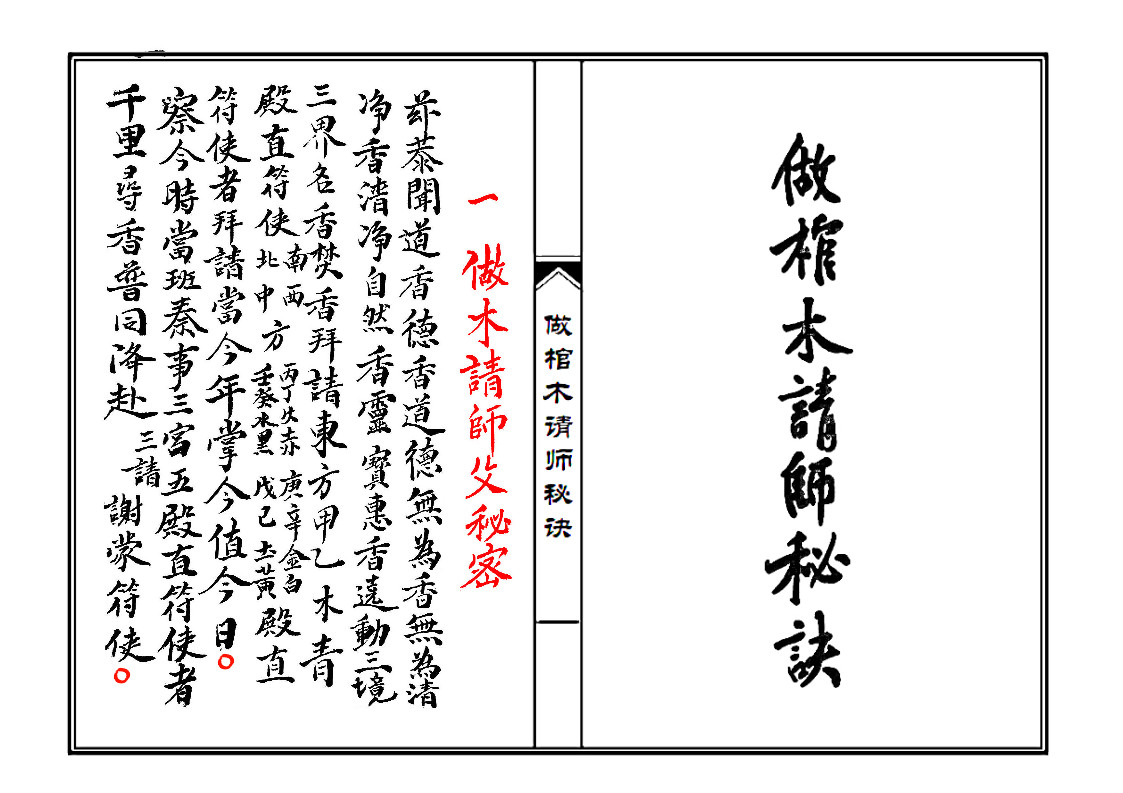 做棺木請師秘訣
做棺木请师秘诀
一 做木請師父秘密
恭聞道香德香道德無為香無為清
净香清净自然香靈寶惠香遶動三境
三界名香焚香拜請東方甲乙木青
殿直符使南西北中方丙丁火赤壬癸水黑庚辛金白戊己土黄殿直
符使者拜請當今年掌今值今日。
察今時當班奏事三宮五殿直符使者
千里尋香普同降赴三請謝蒙符使。